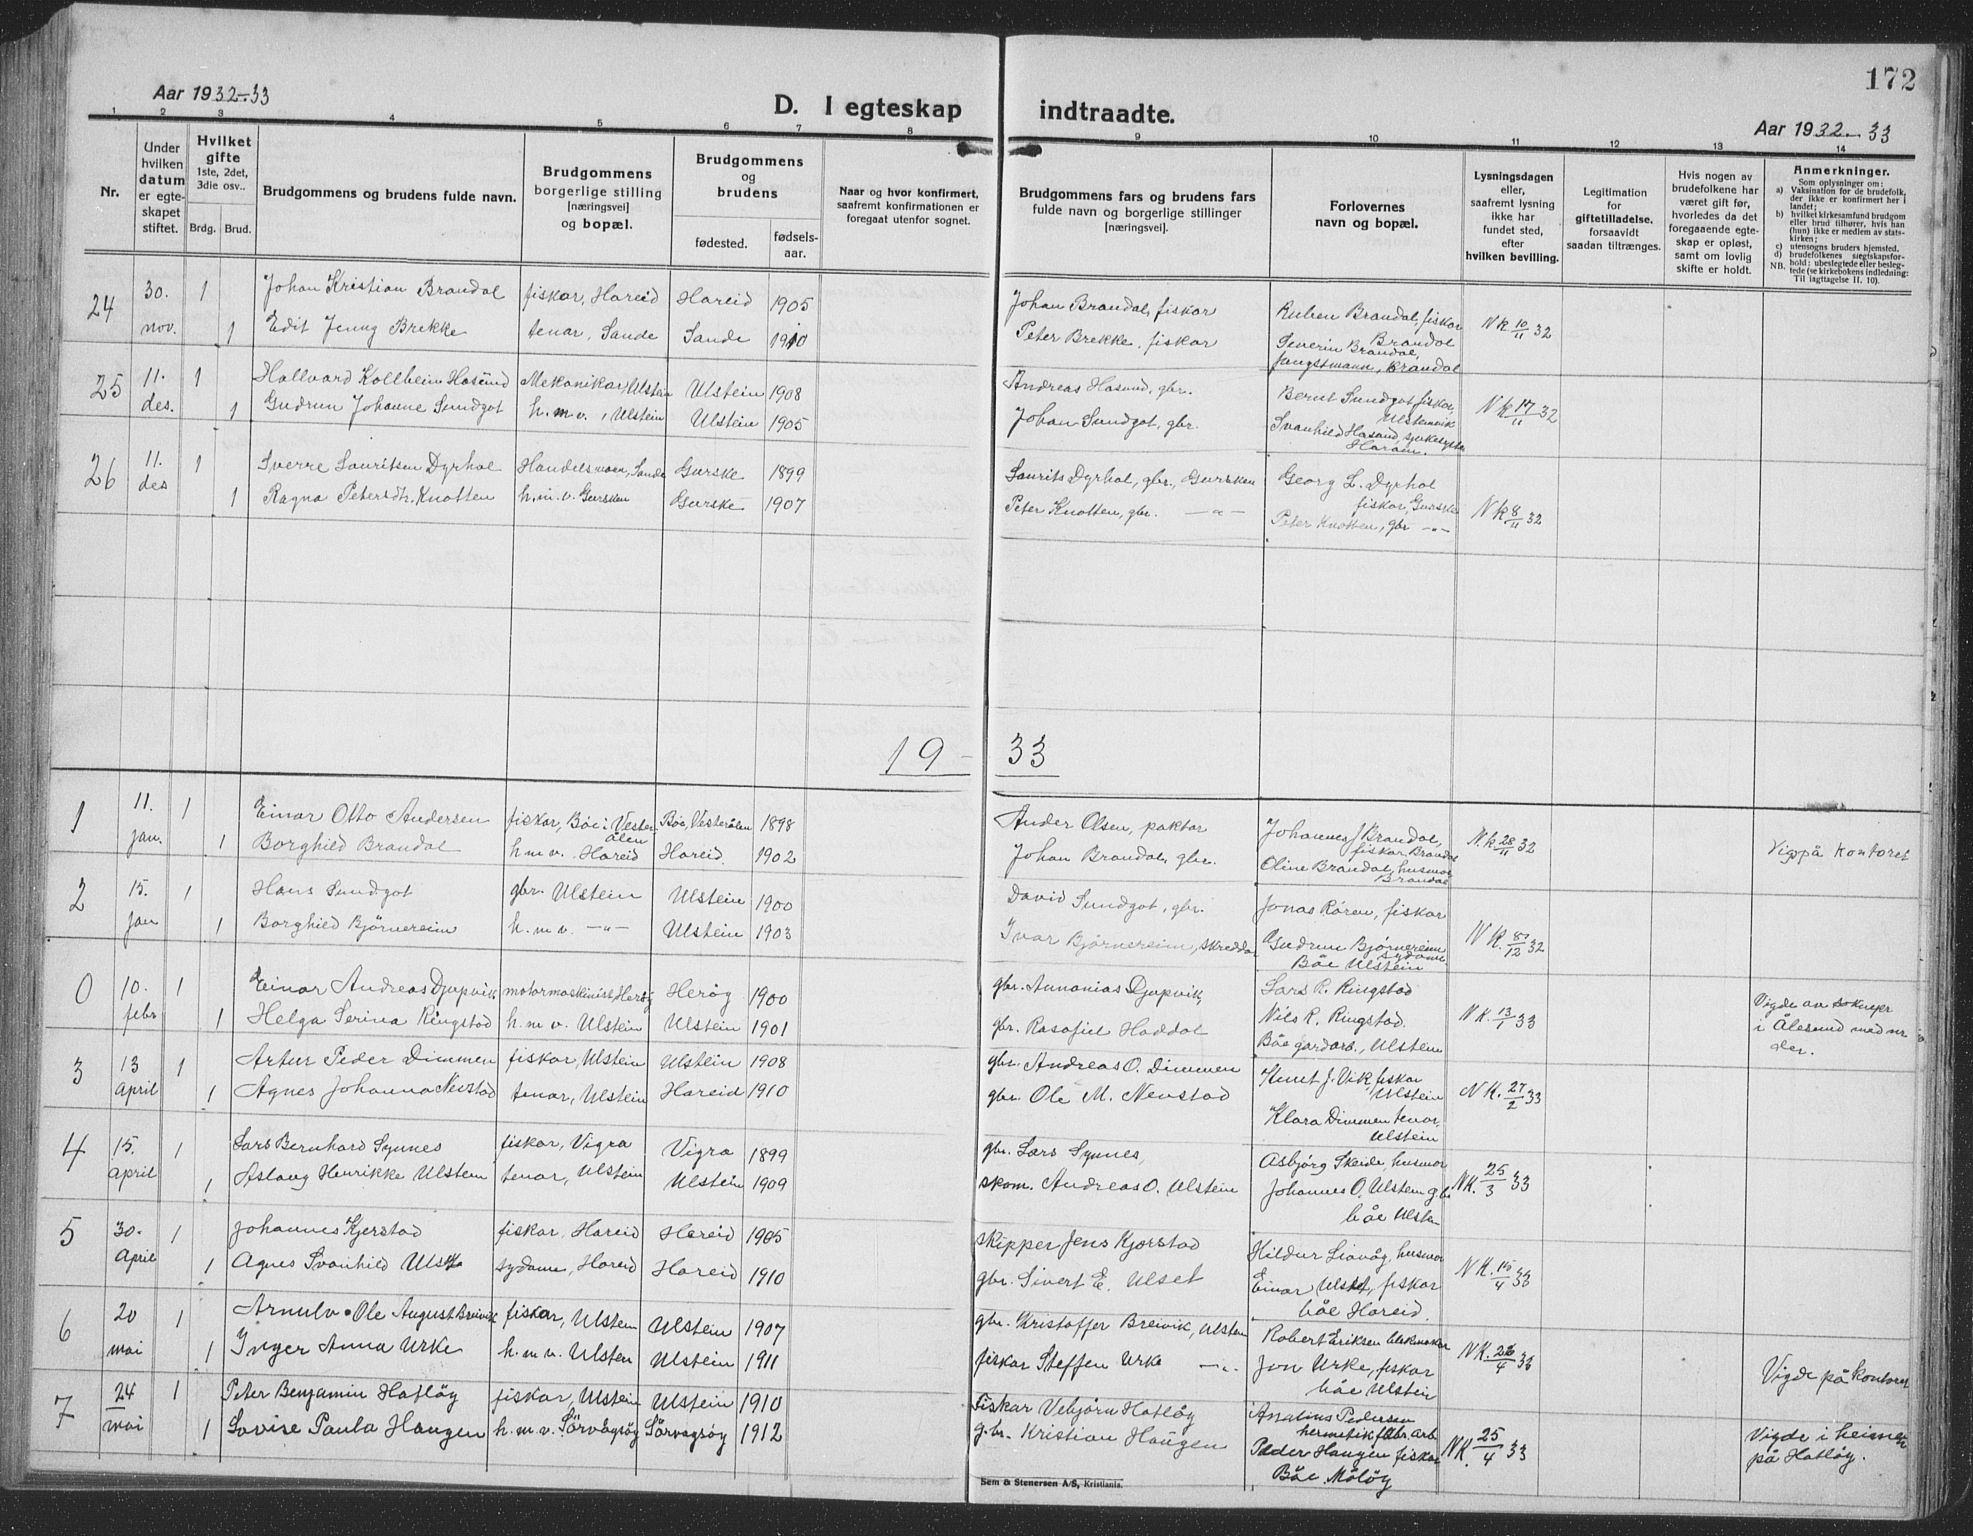 172
Aar 1932-33
D. I egteskap indtraadte.
Aar 1932-33
1 2 3 4 5 6 7 8 9 10 11 12 13 14
Nr.
Under hvilken datum er egteskapet stiftet.
Hvilket gifte 1ste, 2det, 3die osv..
Brdg. Brud.
Brudgommens og brudens fulde navn.
Brudgommens borgerlige stilling [næringsvei] og bopæl.
Brudgommens og brudens
fødested.
fødselsaar.
Naar og hvor konfirmert, saafremt konfirmationen er foregaat utenfor sognet.
Brudgommens fars og brudens fars fulde navn og borgerlige stillinger [næringsvei].
Forlovernes navn og bopæl.
Lysningsdagen eller, saafremt lysning ikke har fundet sted, efter hvilken bevilling.
Legitimation for giftetilladelse. forsaavidt saadan tiltrænges.
Hvis nogen av brudefolkene har været gift før, hvorledes da det foregaaende egteskap er opløst, samt om lovlig skifte er holdt.
Anmerkninger.
Som oplysninger om:
a) Vaksination for de brudefolk, der ikke er konfirmert her i landet;
b) hvilket kirkesamfund brudgom eller brud tilhører, hvis han (hun) ikke er medlem av statskirken;
c) utensogns bruders hjemsted.
d) brudefolkenes slegtskapsforhold: ubeslegtede eller beslegtede (se kirkebokens indledning: Til iagttagelse II. 10).
NB.
24 30. nov. 1 Johan Kristian Brandal fiskar, Hareid Hareid 1905 Johan Brandal, fiskar Ruben Brandal, fiskar Brandal NK 10/11 32
1 Edit Jenny Brekke tenar, Sande Sande 1910 Peter Brekke, fiskar Severin Brandal, fangstmann, Brandal
25 11. des. 1 Hallvard Kollbein Hasund Mekanikar, Ulstein Ulstein 1908 Andreas Hasund, gbr. Bernt Sundgot, fiskar, Ulsteinvik NK 17/11 32
1 Gudrun Johanne Sundgot h.m.v., Ulstein Ulstein 1905 Johan Sundgot, gbr. Svanhild Hasund, sjukesyster Haram.
26 11. des 1 Sverre Lauritsen Dyrhol Handelsmann, Sande Gurske 1899 Laurits Dyrhol, gbr., Gursken Georg L. Dyrhol fiskar, Gurske NK 8/11 32
1 Ragna Petersdtr. Knotten h.m.v. Gursken Gurske 1907 Peter Knotten, gbr. —"— Peter Knotten, gbr —"—
19 - 33
1 11. jan. 1 Einar Otto Andersen fiskar, Böe i Vesterålen Böe, Vesterålen 1898 Ander Olsen, Johannes J Brandal, fiskar, Brandal N.k. 28/11 32
1 Borghild Brandal h.m.v. Hareid Hareid. 1902 Johan Brandal, gbr. Oline Brandal, husmor Brandal kontoret
2 15. jan 1 Hans Sundgot gbr. Ulstein Ulstein 1900 David Sundgot, gbr. Jonas Rören, fiskar NK. 8/12 32
1 Borghild Björnereim h.m.v. —"— Ulstein 1903 Ivar Bjørnereim, skreddar Gudrun Bjørnereim sydame Båe Ulstein
0 10. febr 1 Einar Andreas Djupvik motormaskinist, Heröy Heröy 1900 gbr. Annanias Djupvik, Lars R. Ringstad NK. 13/1 33 Vigde av sokneprest i Ålesund med nr der.
1 Helga Serina Ringstad h.m.v. Ulstein Ulstein 1901 gbr. Rasafiel Haddal Nils R. Ringstad. Båe gardarb., Ulstein
3 13 April 1 Artur Peder Dimmen fiskar, Ulstein Ulstein 1908 gbr. Andreas O. Dimmen Knut J. Vik, fiskar Ulstein NK. 27/2 33
1 Agnes Johanna Nevstad tenar, Ulstein Hareid 1910 gbr. Ole M. Nevstad Klara Dimmen tenar, Ulstein
4 15. April 1 Lars Bernhard Synnes fiskar, Vigra Vigra 1899 gbr. Lars Synnes, Asbjörg Skeide, husmor NK. 25/3 33
1 Aslaug Henrikke Ulstein tenar, Ulstein Ulstein 1909 skom. Andreas O. Ulstein Johannes O. Ulstein gbr båe Ulstein
5 30. April 1 Johannes Kjerstad fiskar, Hareid Hareid 1905 Skipper Jens Kjerstad Hildur Liavåg, husmor NK. 10/4 33
1 Agnes Svanhild Ulset sydame, Hareid Hareid 1910 gbr. Sivert E. Ulset Einar Ulset, fiskar båe Hareid.
6 20 mai 1 Arnulv Ole August Breivik fiskar, Ulstein Ulstein 1907 gbr. Kristoffer Breivik, Ulstein Robert Eriksen NK. 26/4 33
1 Inger Anna Urke h.m.v. Ulstein Ulstein 1911 fiskar Steffen Urke —"— Jon Urke, fiskar båe Ulstein Vigde på kontoret
7 24 mai 1 Peter Benjamin Hatløy fiskar, Ulstein Ulstein 1910 Fiskar Vebjørn Hatløy Analius Pedersen hermetikfabr. arb. NK. 25/4 33
1 Lovise Paula Haugen h.m.v. Sörvågsöy Sörvagsöy 1912 gbr. Kristian Haugen Peder Haugen fiskar Båe Måløy Vigde i heimen på Hatløy.
Sem & Stenersen A/S, Kristiania.